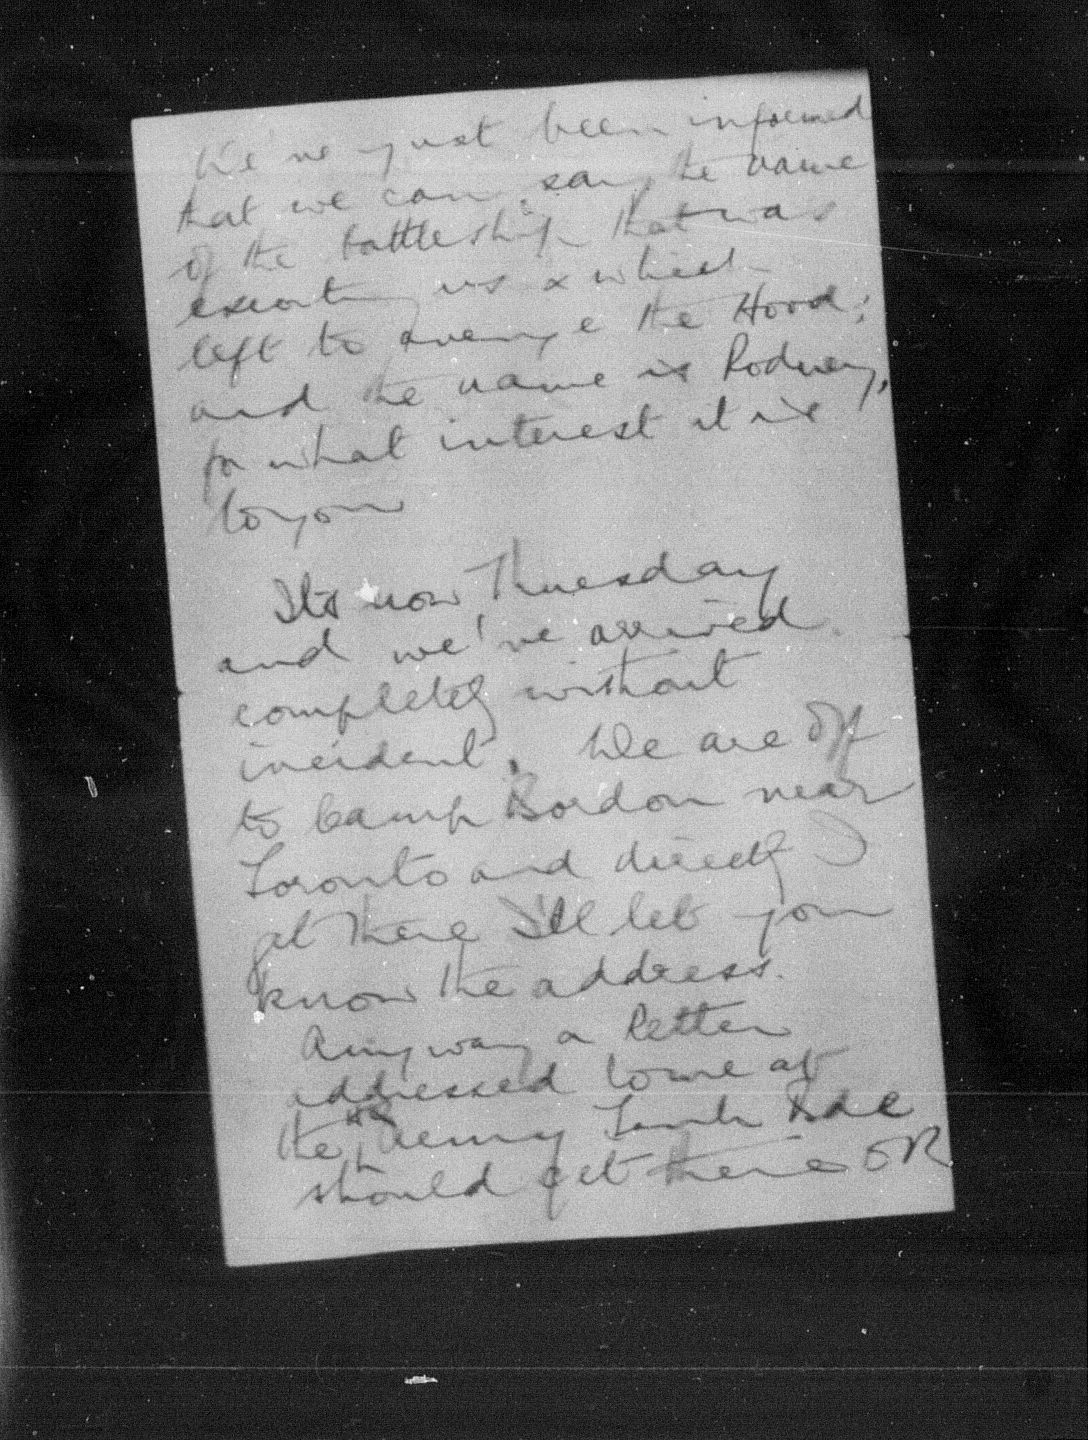 We've just been informed
that we can say the name
of the battleship that was
escorting us & which
left to avenge the Hood;
and the name is Rodney,
for what interest it is
to you
Its now Thuesday
and we've arrived
completely without
incident. We are off
to Camp Bordon near
Toronto and directly I
get there I'll let you
know the address.
Anyway a letter
addressed to me at
the Army Tank Bde
should get there OK